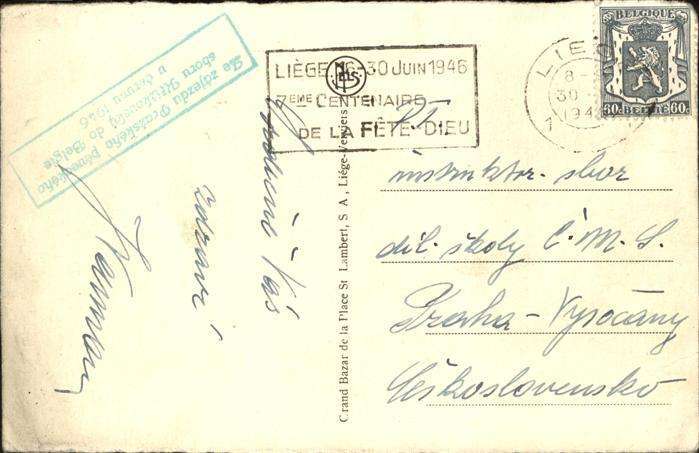 Ze zájezdu Pražského pěveckého
sboru Smetana do Belgie
v červnu 1946
LIÈGE 16-30 JUIN 1946
7EME CENTENAIRE
DE LA FÊTE-DIEU
BELGIQUE
60 BELGIË 60
Srdečně Vás
zdraví
Grand Bazar de la Place St Lambert, S A, Liége-Verviers
instruktor. sbor
díl. školy Č. M. S.
Praha-Vysočany
Československo